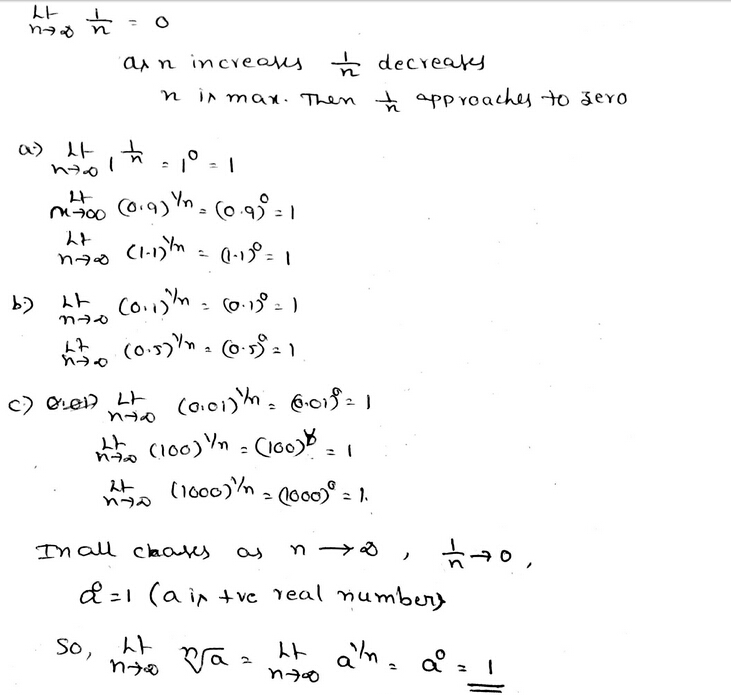 Lt n→∞ 1/n = 0
as n increases 1/n decreases
n is max. Then 1/n approaches to zero
a) Lt n→∞ 1^1/n = 1^0 = 1
Lt n→∞ (0.9)^1/n = (0.9)^0 = 1
Lt n→∞ (1.1)^1/n = (1.1)^0 = 1
b) Lt n→∞ (0.1)^1/n = (0.1)^0 = 1
Lt n→∞ (0.5)^1/n = (0.5)^0 = 1
c) Lt n→∞ (0.01)^1/n = (0.01)^0 = 1
Lt n→∞ (100)^1/n = (100)^0 = 1
Lt n→∞ (1000)^1/n = (1000)^0 = 1.
In all as n → ∞ , 1/n → 0 ,
a^0 = 1 (a is +ve real number)
So, Lt n→∞ ⁿ√a = Lt n→∞ a^1/n = a^0 = 1